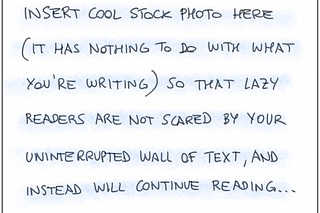 INSERT COOL STOCK PHOTO HERE
(IT HAS NOTHING TO DO WITH WHAT
YOU'RE WRITING) SO THAT LAZY
READERS ARE NOT SCARED BY YOUR
UNINTERRUPTED WALL OF TEXT, AND
INSTEAD WILL CONTINUE READING...